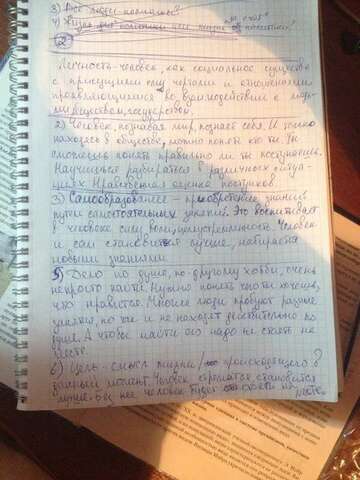 3) Все люди
4) Жизнь для политики или
2
Личность-человек, как социальное существо
с присущими ему чертами и отношениями
проявляющимися во взаимодействии с людь-
ми, обществом, государством.
2) Человек, познавая мир, познает себя. И только
находясь в обществе, можно понять кто ты. Ты
сможешь понять правильно ли ты поступаешь.
Научишься разбираться в различных ситуа-
циях. Нравственная оценка поступков.
3) Самообразование - приобретение знаний
путем самостоятельных занятий. Это воспитывает
в человеке силу воли, целеустремленность. Человек
и сам становится лучше, набирается
новыми знаниями
5) Дело по душе, по-другому хобби, очень
непросто найти. Нужно понять чего ты хочешь,
что нравится. Многие люди пробуют разные
занятия, но так и не находят действительно по
душе. А чтобы найти его надо не стоять на
месте.
6) Цель - смысл жизни/ происходящего в
данный момент. Человек стремится становится
лучше. Без нее человек будет стоять на месте.